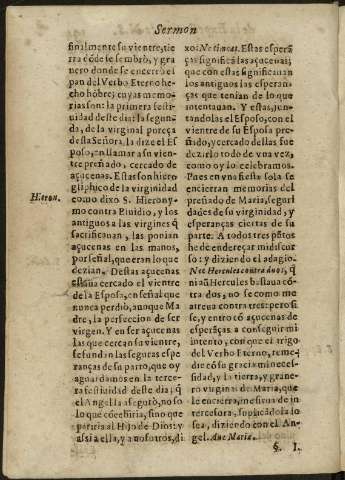 Sermon
finalmente su vientre, tie
rra dõde se sembrò, y gra
nero donde se encerrò el
pan del Verbo Eterno he-
cho hõbre; cuyas memo-
rias son: la primera festi-
uidad deste dia: la segun-
da, de la virginal pureça
desta Señora, la dize el Es
poso, en llamar a su vien
tre preñado, cercado de
açucenas. Estas son hiero
gliphico de la virginidad
como dixo S. Hierony-
mo contra Eluidio, y los
antiguos a las virgines q̃
sacrificanan, las ponian
açucenas en las manos,
por señal, que eran lo que
dezian. Destas açucenas
estaua cercado el vientre
de la Esposa, en señal que
nunca perdió, aunque Ma
dre, la perfeccion de ser
virgen. Y en ser açucenas
las que cercan su vientre,
se fundan las seguras espe
ranças de su parto, que oy
aguardamos en la terce-
ra festiuidad deste dia; q̃
el Angel la asegurò, no so
lo que cõcebiria, sino que
pariria al Hijo de Dios: y
assi a ella, y a nosotros, di
Hieron.
xo: Ne timeas. Estas esperã
ças significã las açucenas;
que con estas significauan
los antiguos las esperan-
ças que tenian de lo que
intentauan. Y estas, jun-
tandolas el Esposo, con el
vientre de su Esposa pre-
ñado, y cercado dellas fue
dezirlo todo de vna vez,
como oy lo celebramos.
Pues en vna fiesta sola se
encierran memorias del
preñado de Maria, seguri
dades de su virginidad, y
esperanças ciertas de su
parte. A todos tres pũtos
he de endereçar mi discur
so: y diziendo el adagio.
Nec Hercules contra duos, q̃
ni aũ Hercules bastaua cõ-
tra dos, no se como me
atreua contra tres: pero si
se, y entro cõ açucenas de
esperãças a conseguir mi
intento, con que el trigo
del Verbo Eterno, reme-
die cõ su gracia mi neces-
sidad, y la tierra, y grane-
ro virginal de Maria, que
le encierra, me sirua de in
tercesora, suplicãdola lo
sea, diziendo con el An-
gel. Aue Maria.
§. I.